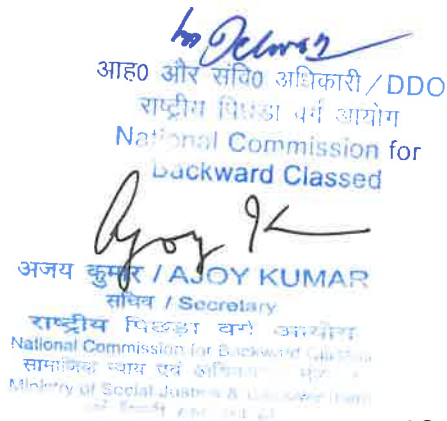 आह० और संवि० अधिकारी/DDO
राष्ट्रीय पिछड़ा वर्ग आयोग
National Commission for
Backward Classed
Ajoy K
अजय कुमार / AJOY KUMAR
सचिव / Secretary
राष्ट्रीय पिछड़ा वर्ग आयोग
National Commission for Backward
सामाजिक न्याय एवं
Ministry of Social Justice &